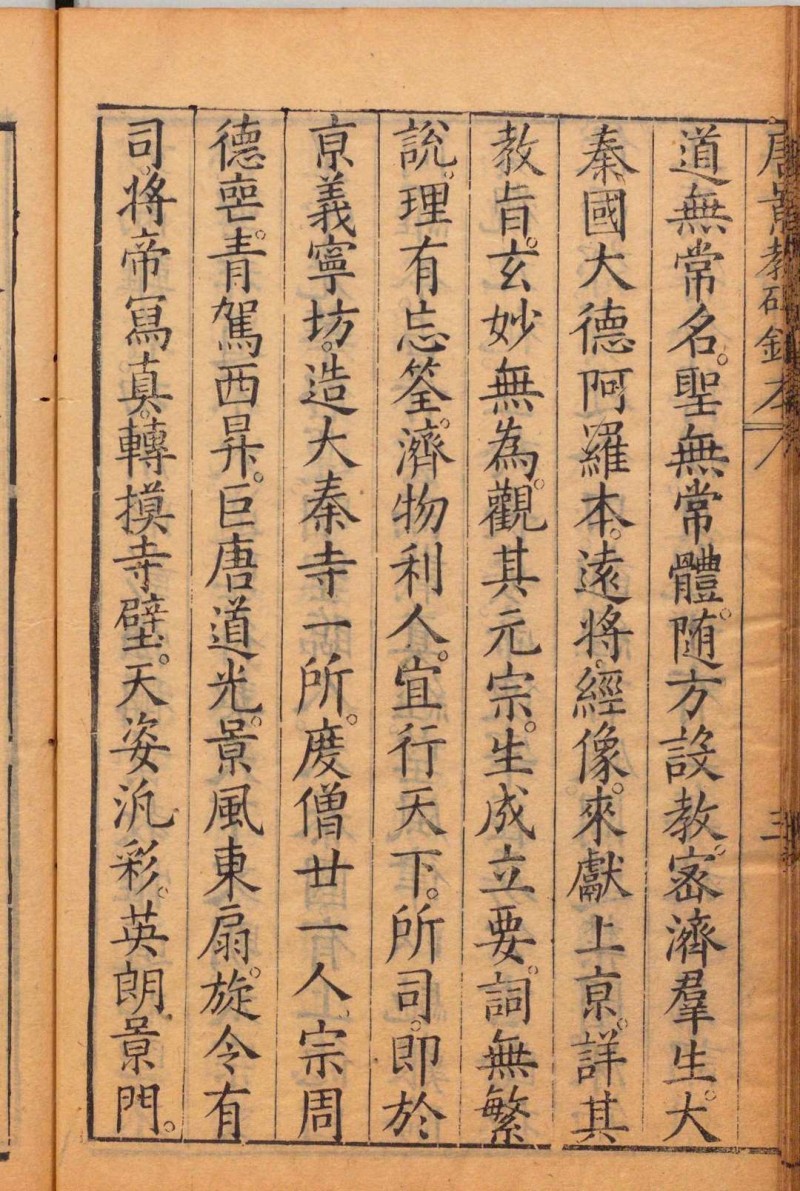 唐景教碑鈔本
三
道無常名。聖無常體。随方設教。宻濟羣生。大
秦國大德阿羅本。遠將。經像。來獻上京。詳其
教旨。玄妙無為。觀其元宗。生成立要。詞無繁
說。理有忘筌。濟物利人。宜行天下。所司。即於
京義寧坊。造大秦寺一所。度僧廿一人、宗周
德喪。青駕西昇。巨唐道光。景風東扇。旋令有
司。将帝冩真。轉摸寺壁。天姿汎彩。英朗景門。